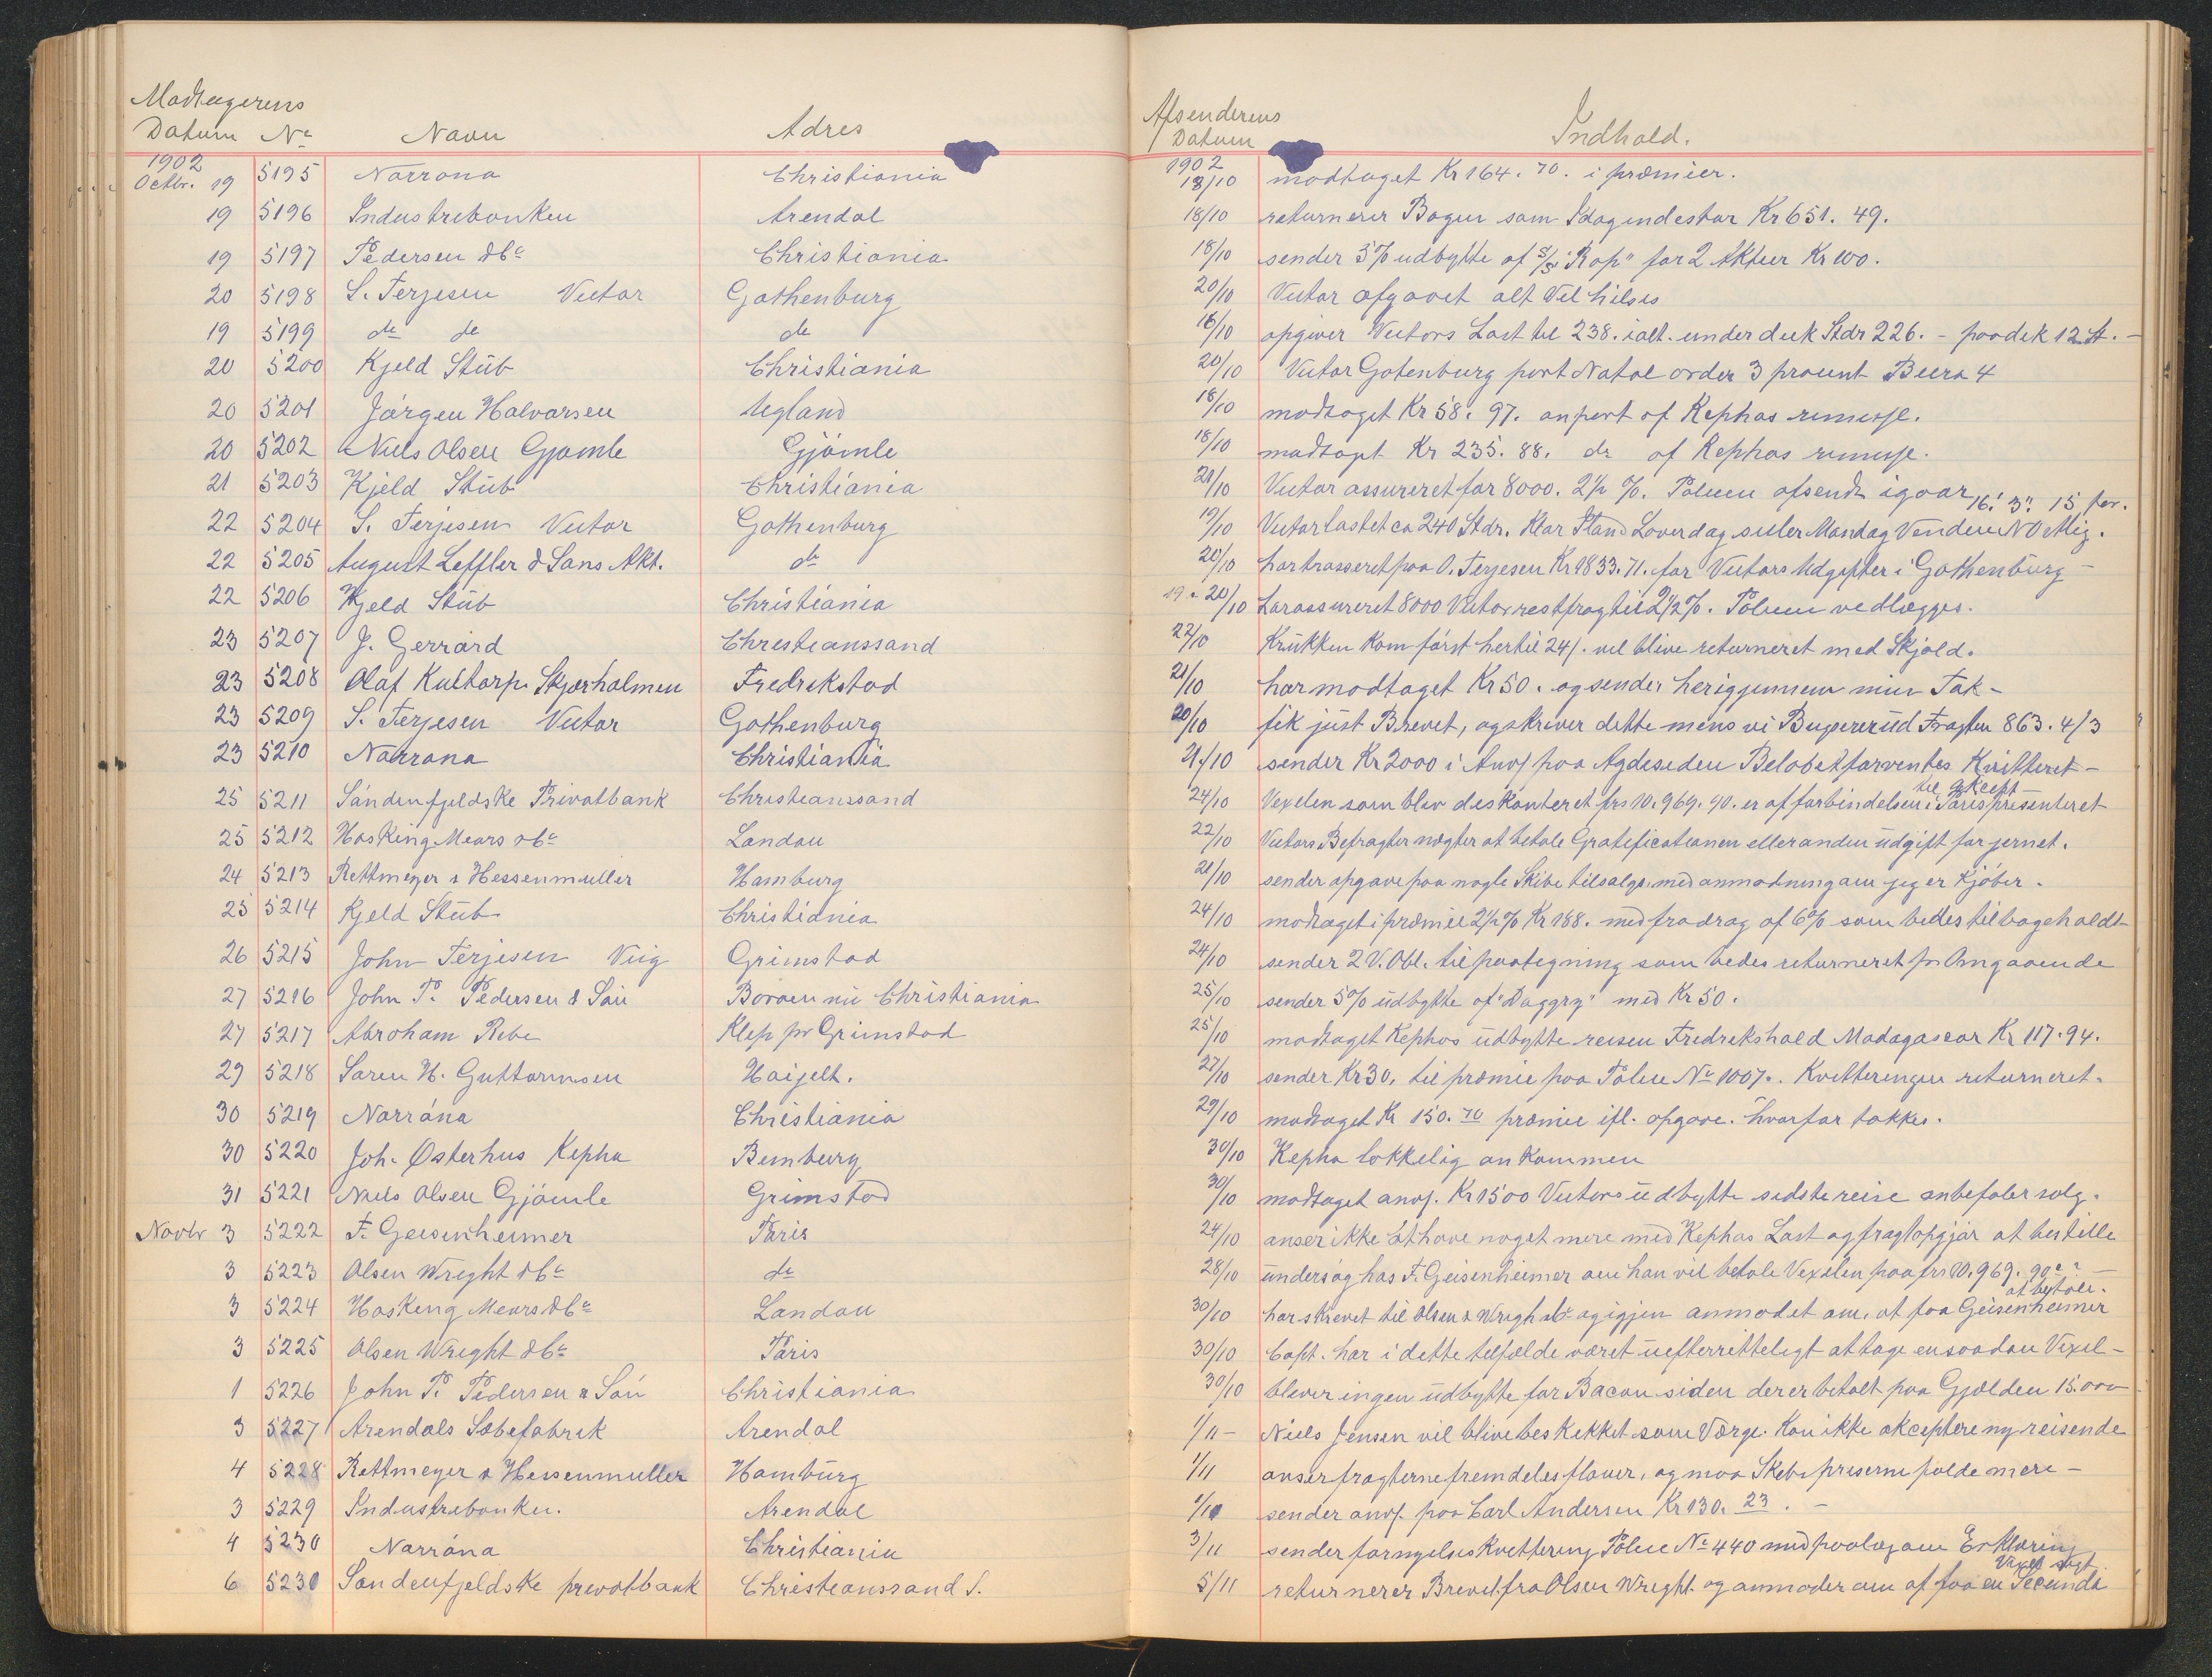 Modtagerens
Datum No Navn Adres
1902
Octbr. 19 5195 Norrøna Christiania
19 5196 Industribanken Arendal
19 5197 Pedersen & Co Christiania
20 5198 S. Terjesen Victor Gothenburg
19 5199 do do do
20 5200 Kjeld Stüb Christiania
20 5201 Jørgen Halvorsen Ugland
20 5202 Niels Olsen Gjömle Gjömle
21 5203 Kjeld Stüb Christiania
22 5204 S. Terjesen Victor Gothenburg
22 5205 August Leffler & Sons Akt. do
22 5206 Kjeld Stüb Christiania
23 5207 J. Gerrard Christianssand
23 5208 Olaf Kultorp. Skjærholmen Fredrikstad
23 5209 S. Terjesen Victor Gothenburg
23 5210 Norrøna Christiania
25 5211 Söndenfjeldske Privatbank Christianssand
25 5212 Hosking Mears & Co London
24 5213 Rettmeyer & Hessenmüller Hamburg
25 5214 Kjeld Stüb Christiania
26 5215 John Terjesen Viig Grimstad
27 5216 John P. Pedersen & Sön Boröen nu Christiania
27 5217 Abraham Ribe Klep pr Grimstad
29 5218 Sören H. Guttormsen Haijelt.
30 5219 Norröna Christiania
30 5220 Joh. Østerhus Kepha Bemburg
31 5221 Niels Olsen Gjömle Grimstad
Novbr 3 5222 F. Geisenheimer Paris
3 5223 Olsen Wright & Co do
3 5224 Hosking Mears & Co London
3 5225 Olsen Wright & Co Paris
1 5226 John P. Pedersen & Sön Christiania
3 5227 Arendals Sæbefabrik Arendal
4 5228 Rettmeyer & Hessenmuller Hamburg
3 5229 Industribanken. Arendal
4 5230 Norröna Christiania
6 5230 Söndenfjeldske privatbank Christianssand S.
Afsenderens
Datum Indhold.
1902
18/10 modtaget Kr 164. 70. i præmier.
18/10 returnerer Bogen som Idag indestaar Kr 651. 49.
18/10 sender 5% udbytte af S/S "Rap" for 2 Aktier Kr 100.
20/10 Victor afgaaet alt Vel hilses
16/10 opgiver Victors Last til 238. ialt. under dæk Stdr 226. - paa dæk 12 St. -
20/10 Victor Gotenburg port Natal order 3 procent Beera 4
18/10 modtaget Kr 58. 97. anpart af Kephas remesse.
18/10 modtaget Kr 235. 88. do af Kephas remesse.
21/10 Victor assureret for 8000. 2½ %. Policen afsendt igaar 16' 3" 15 for.
19/10 Victor lastet ca 240 Stdr. Klar Stand Løverdag seiler Mandag Vinden NO
20/10 har trasseret paa O. Terjesen Kr 1833. 71. for Victors Udgifter i Gothenburg -
19 & 20/10 har assureret 8000 Victor restfragt til 2½ %. Policen vedlægges.
22/10 Krukken kom först hertil 24/. vil blive returneret med Skjold.
21/10 har modtaget Kr 50. og sender herigjennem min Tak -
20/10 fik just Brevet, og skriver dette mens vi Bugsererud Fragten 863. 4/3
21/10 sender Kr 2000 i Anv/ paa Agdesiden Beløbet forventes Kvitteret -
24/10 Vexelen som blev diskonteret frs 10.969. 90. er af forbindelsen i Paris presenteret til Akcept -
22/10 Victors Befragter nægter at betale Gratificationen eller anden udgift for jernet.
21/10 sender opgave paa nogle Skibe tilsalgs. med anmodning om jeg er Kjöber.
24/10 modtaget i præmie 2½ % Kr 188. med fradrag af 6% som bedes tilbageholdt
24/10 sender 2 V. Obl. til paategning som bedes returneret pr Omgaaende
25/10 sender 5% udbytte af "Daggry" med Kr 50.
25/10 modtaget Kephas udbytte reisen Fredrikshald Madagascar Kr 117. 94.
27/10 sender Kr 30. til præmie paa Police No 1007. Kvitteringen returneret.
29/10 modtaget Kr 150. 70 præmie ifl. opgave. hvorfor takkes.
30/10 Kepha lokkelig ankommen
30/10 modtaget anv/. Kr 1500 Victors udbytte sidste reise anbefaler salg.
24/10 anser ikke at have noget mere med Kephas Last og fragtopgjør at bestille
28/10 undersög hos F. Geisenheimer om han vil betale Vexelen paa frs 10.969. 90 -
30/10 har skrevet til Olsen & Wrigh & Co og igjen anmodet om, at faa Geisenheimer at betale.
30/10 Capt. har i dette telfælde været uefterretteligt at tage en saadan Vexel -
30/10 bliver ingen udbytte for Bacon siden der er betalt paa Gjælden 15.000
1/11 - Niels Jensen vil blive beskikket som Værge. Kan ikke akceptere ny reisende
1/11 anser fragterne fremdeles flauer, og maa Skibspriserne falde mere -
1/11 sender anv/. paa Carl Andersen Kr 130. 23. -
3/11 sender fornyelseskvittering Police No 440 med paalæg om Erklæring
5/11 returnerer Brevet fra Olsen Wright og anmoder om at faa en Secunda Vexel